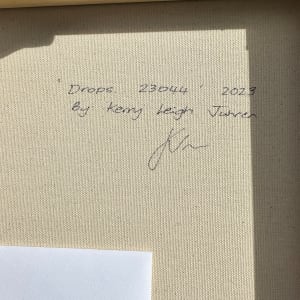 'Drops 23044' 2023
By Kerry Leigh